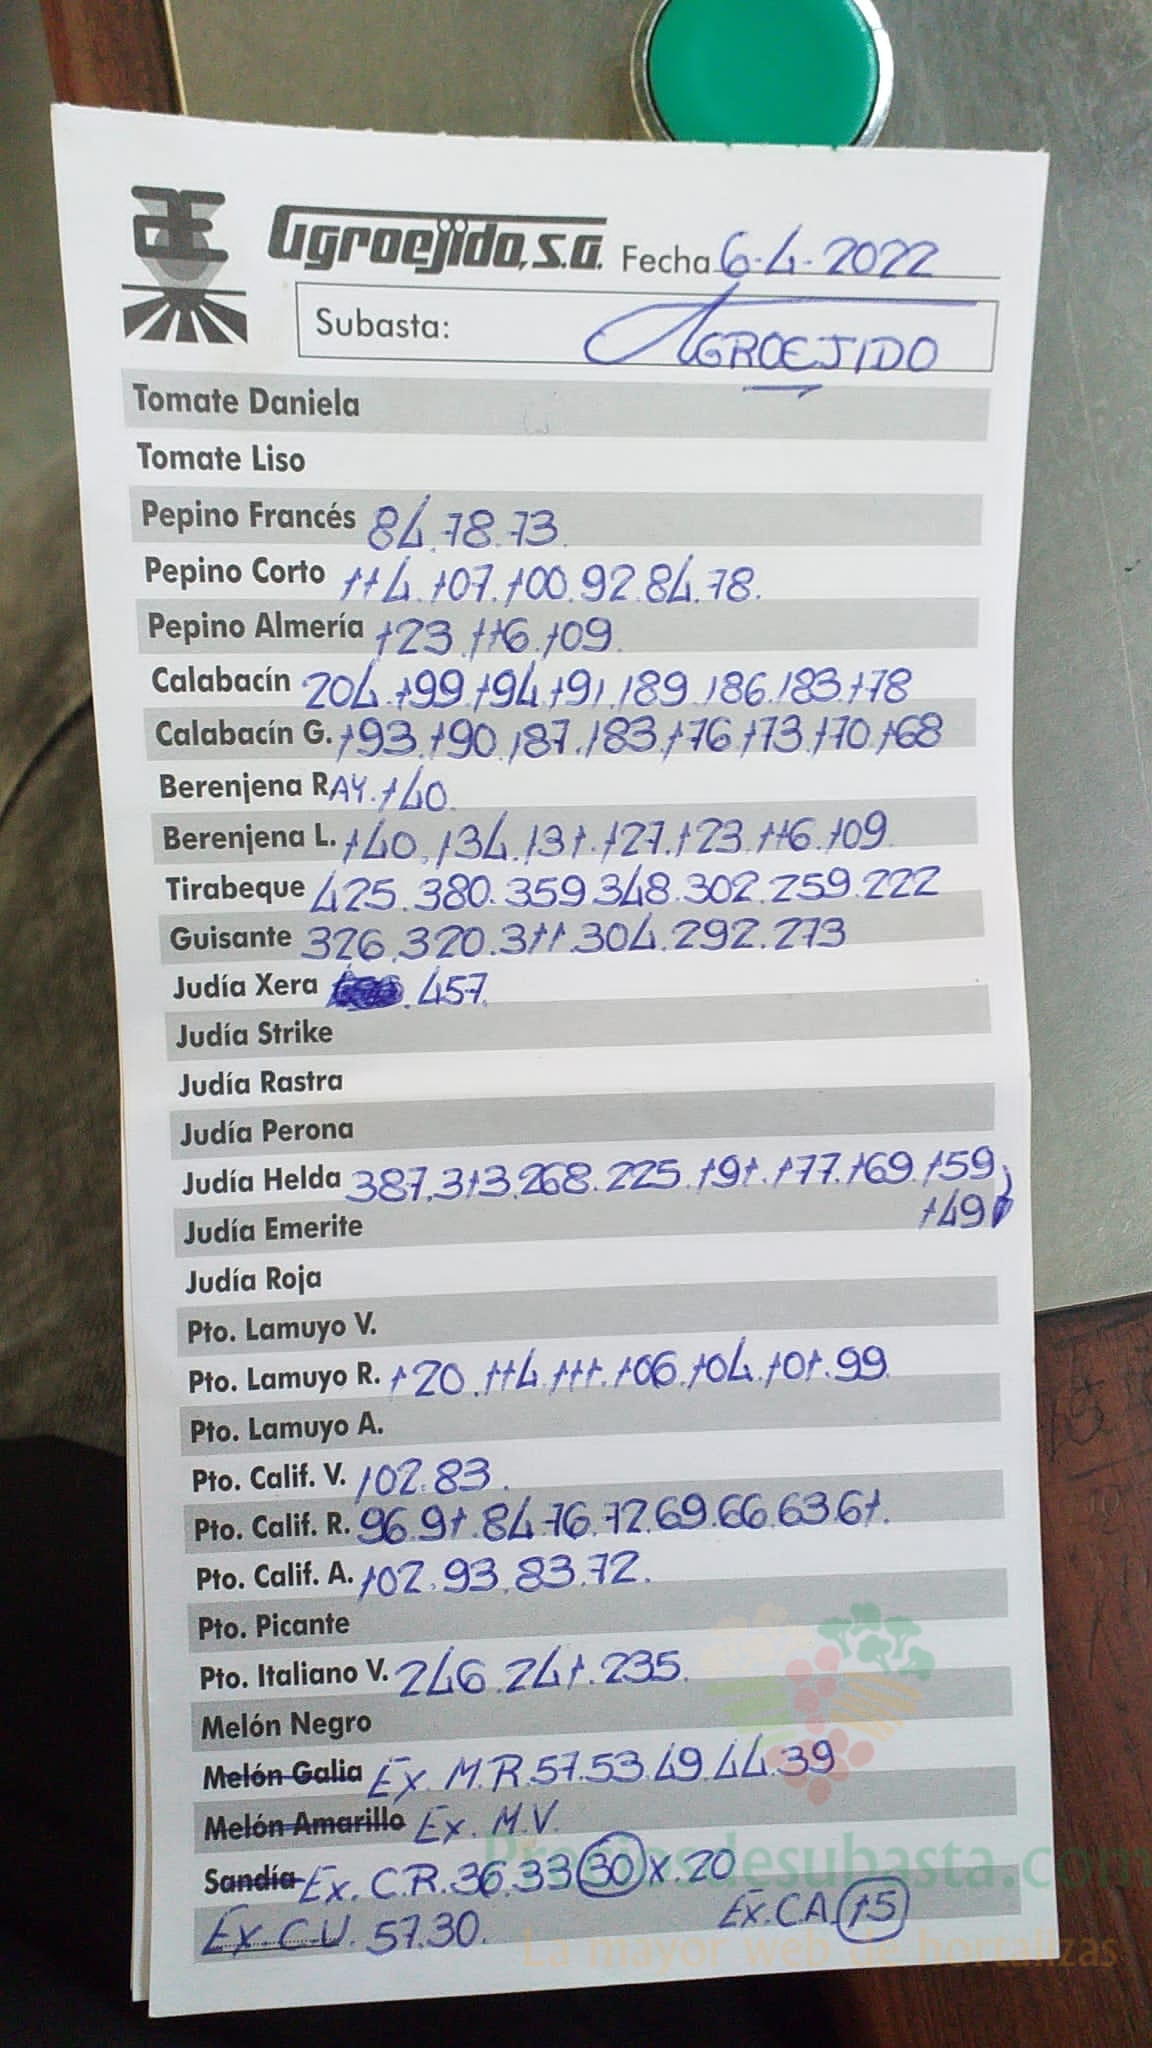 Agroejido, S.A. Fecha 6-4-2022
Subasta: AGROEJIDO
Tomate Daniela
Tomate Liso
Pepino Francés 84.78.73.
Pepino Corto 114.107.100.92.84.78.
Pepino Almería 123.116.109.
Calabacín 204.199.194.191.189.186.183.178
Calabacín G. 193.190.187.183.176.173.170.168
Berenjena RAY. 140.
Berenjena L. 140.134.131.127.123.116.109.
Tirabeque 425.380.359.348.302.259.222
Guisante 326.320.311.304.292.273
Judía Xera . 457.
Judía Strike
Judía Rastra
Judía Perona
Judía Helda 387.313.268.225.191.177.169.159
149
Judía Emerite
Judía Roja
Pto. Lamuyo V.
Pto. Lamuyo R. 120.114.111.106.104.101.99.
Pto. Lamuyo A.
Pto. Calif. V. 102.83.
Pto. Calif. R. 96.91.84.76.72.69.66.63.61.
Pto. Calif. A. 102.93.83.72.
Pto. Picante
Pto. Italiano V. 246.241.235.
Melón Negro
Melón Galia Ex. M.R. 57.53.49.44.39
Melón Amarillo Ex. M.V.
Sandía Ex. C.R. 36.33 30 x.20
Ex. C.V. 57.30. Ex. CA. 15
Preciosdesubasta.com
La mayor web de hortalizas